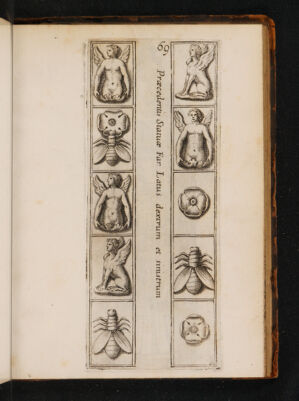 69.
Præcedentis Statuæ Far Latus dexterum et sinistrum